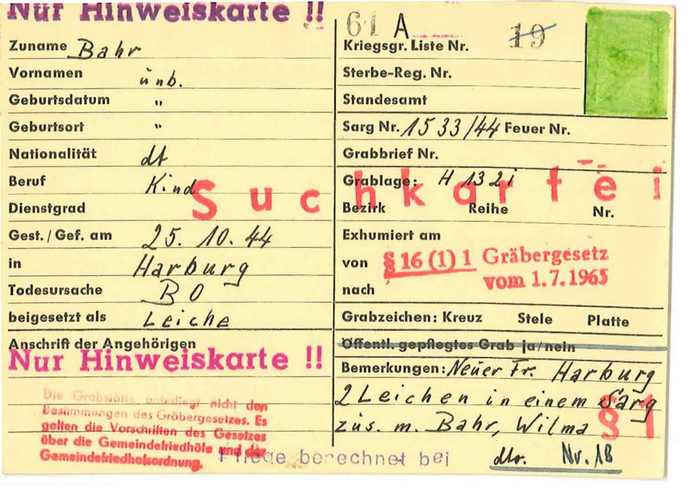 Nur Hinweiskarte !!
Zuname Bahr
Vornamen unb.
Geburtsdatum "
Geburtsort "
Nationalität dt
Beruf Kind
Dienstgrad
Gest./Gef. am 25. 10. 44
in Harburg
Todesursache BO
beigesetzt als Leiche
Anschrift der Angehörigen
Nur Hinweiskarte !!
Die Grabstätte unterliegt nicht den
Bestimmungen des Gräbergesetzes. Es
gelten die Vorschriften des Gesetzes
über die Gemeindefriedhöfe und der
Gemeindefriedhofsordnung.
61 A
Kriegsgr. Liste Nr. 19
Sterbe-Reg. Nr.
Standesamt
Sarg Nr. 1533/44 Feuer Nr.
Grabbrief Nr.
Grablage: H 13 2i
Suchkartei
Bezirk Reihe Nr.
Exhumiert am
von
nach
§ 16 (1) 1 Gräbergesetz
vom 1.7.1965
Grabzeichen: Kreuz Stele Platte
Öffentl. gepflegtes Grab ja/nein
Bemerkungen: Neuer Fr. Harburg
2 Leichen in einem Sarg
zus. m. Bahr, Wilma
§1
Pflege berechnet bei
Nr. 18